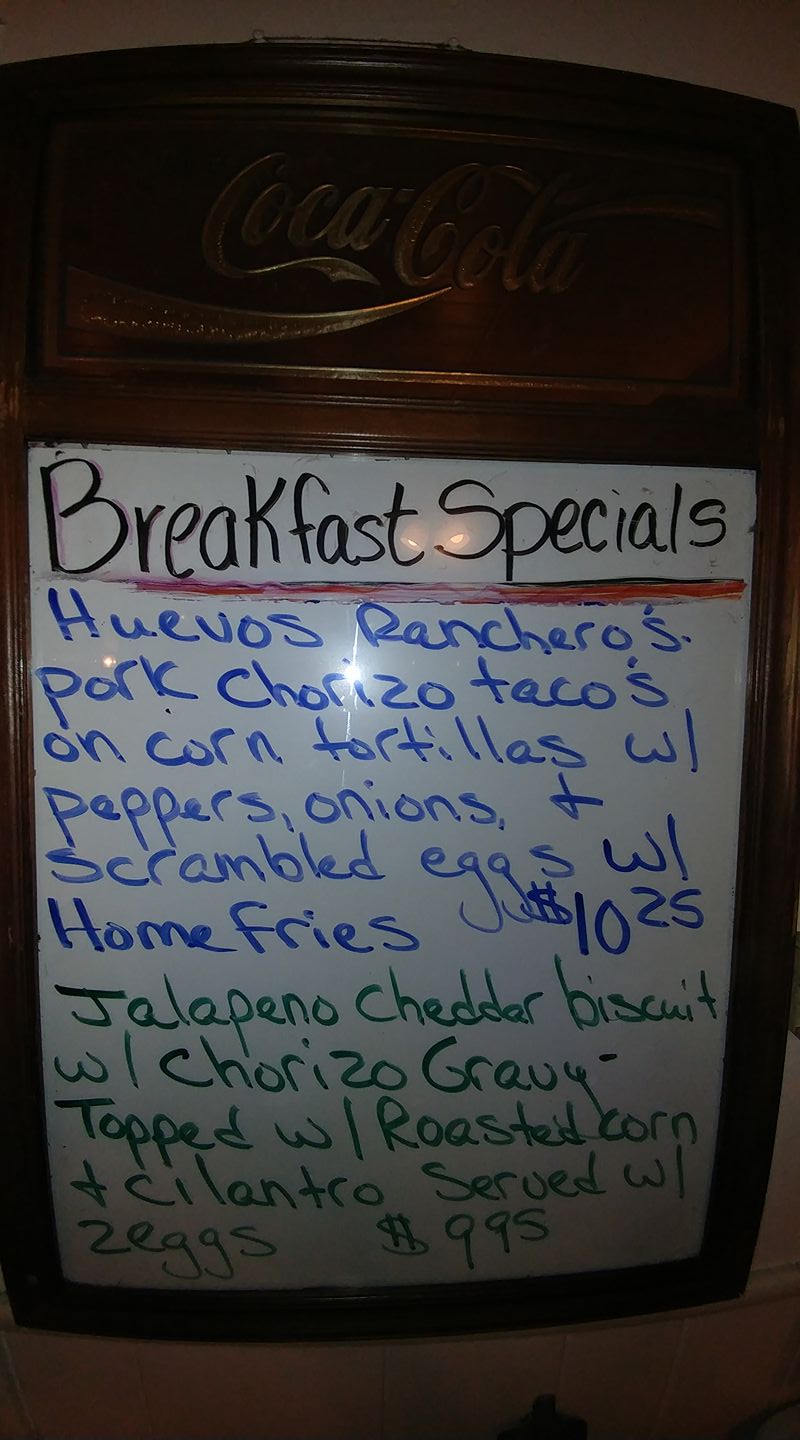 Coca-Cola
Breakfast Specials
Huevos Ranchero's.
pork chorizo taco's
on corn tortillas w/
peppers, onions, +
scrambled eggs w/
Home fries $10 25
Jalapeno Cheddar biscuit
w/ Chorizo Gravy-
Topped w/ Roasted corn
+ cilantro Served w/
2eggs $ 995